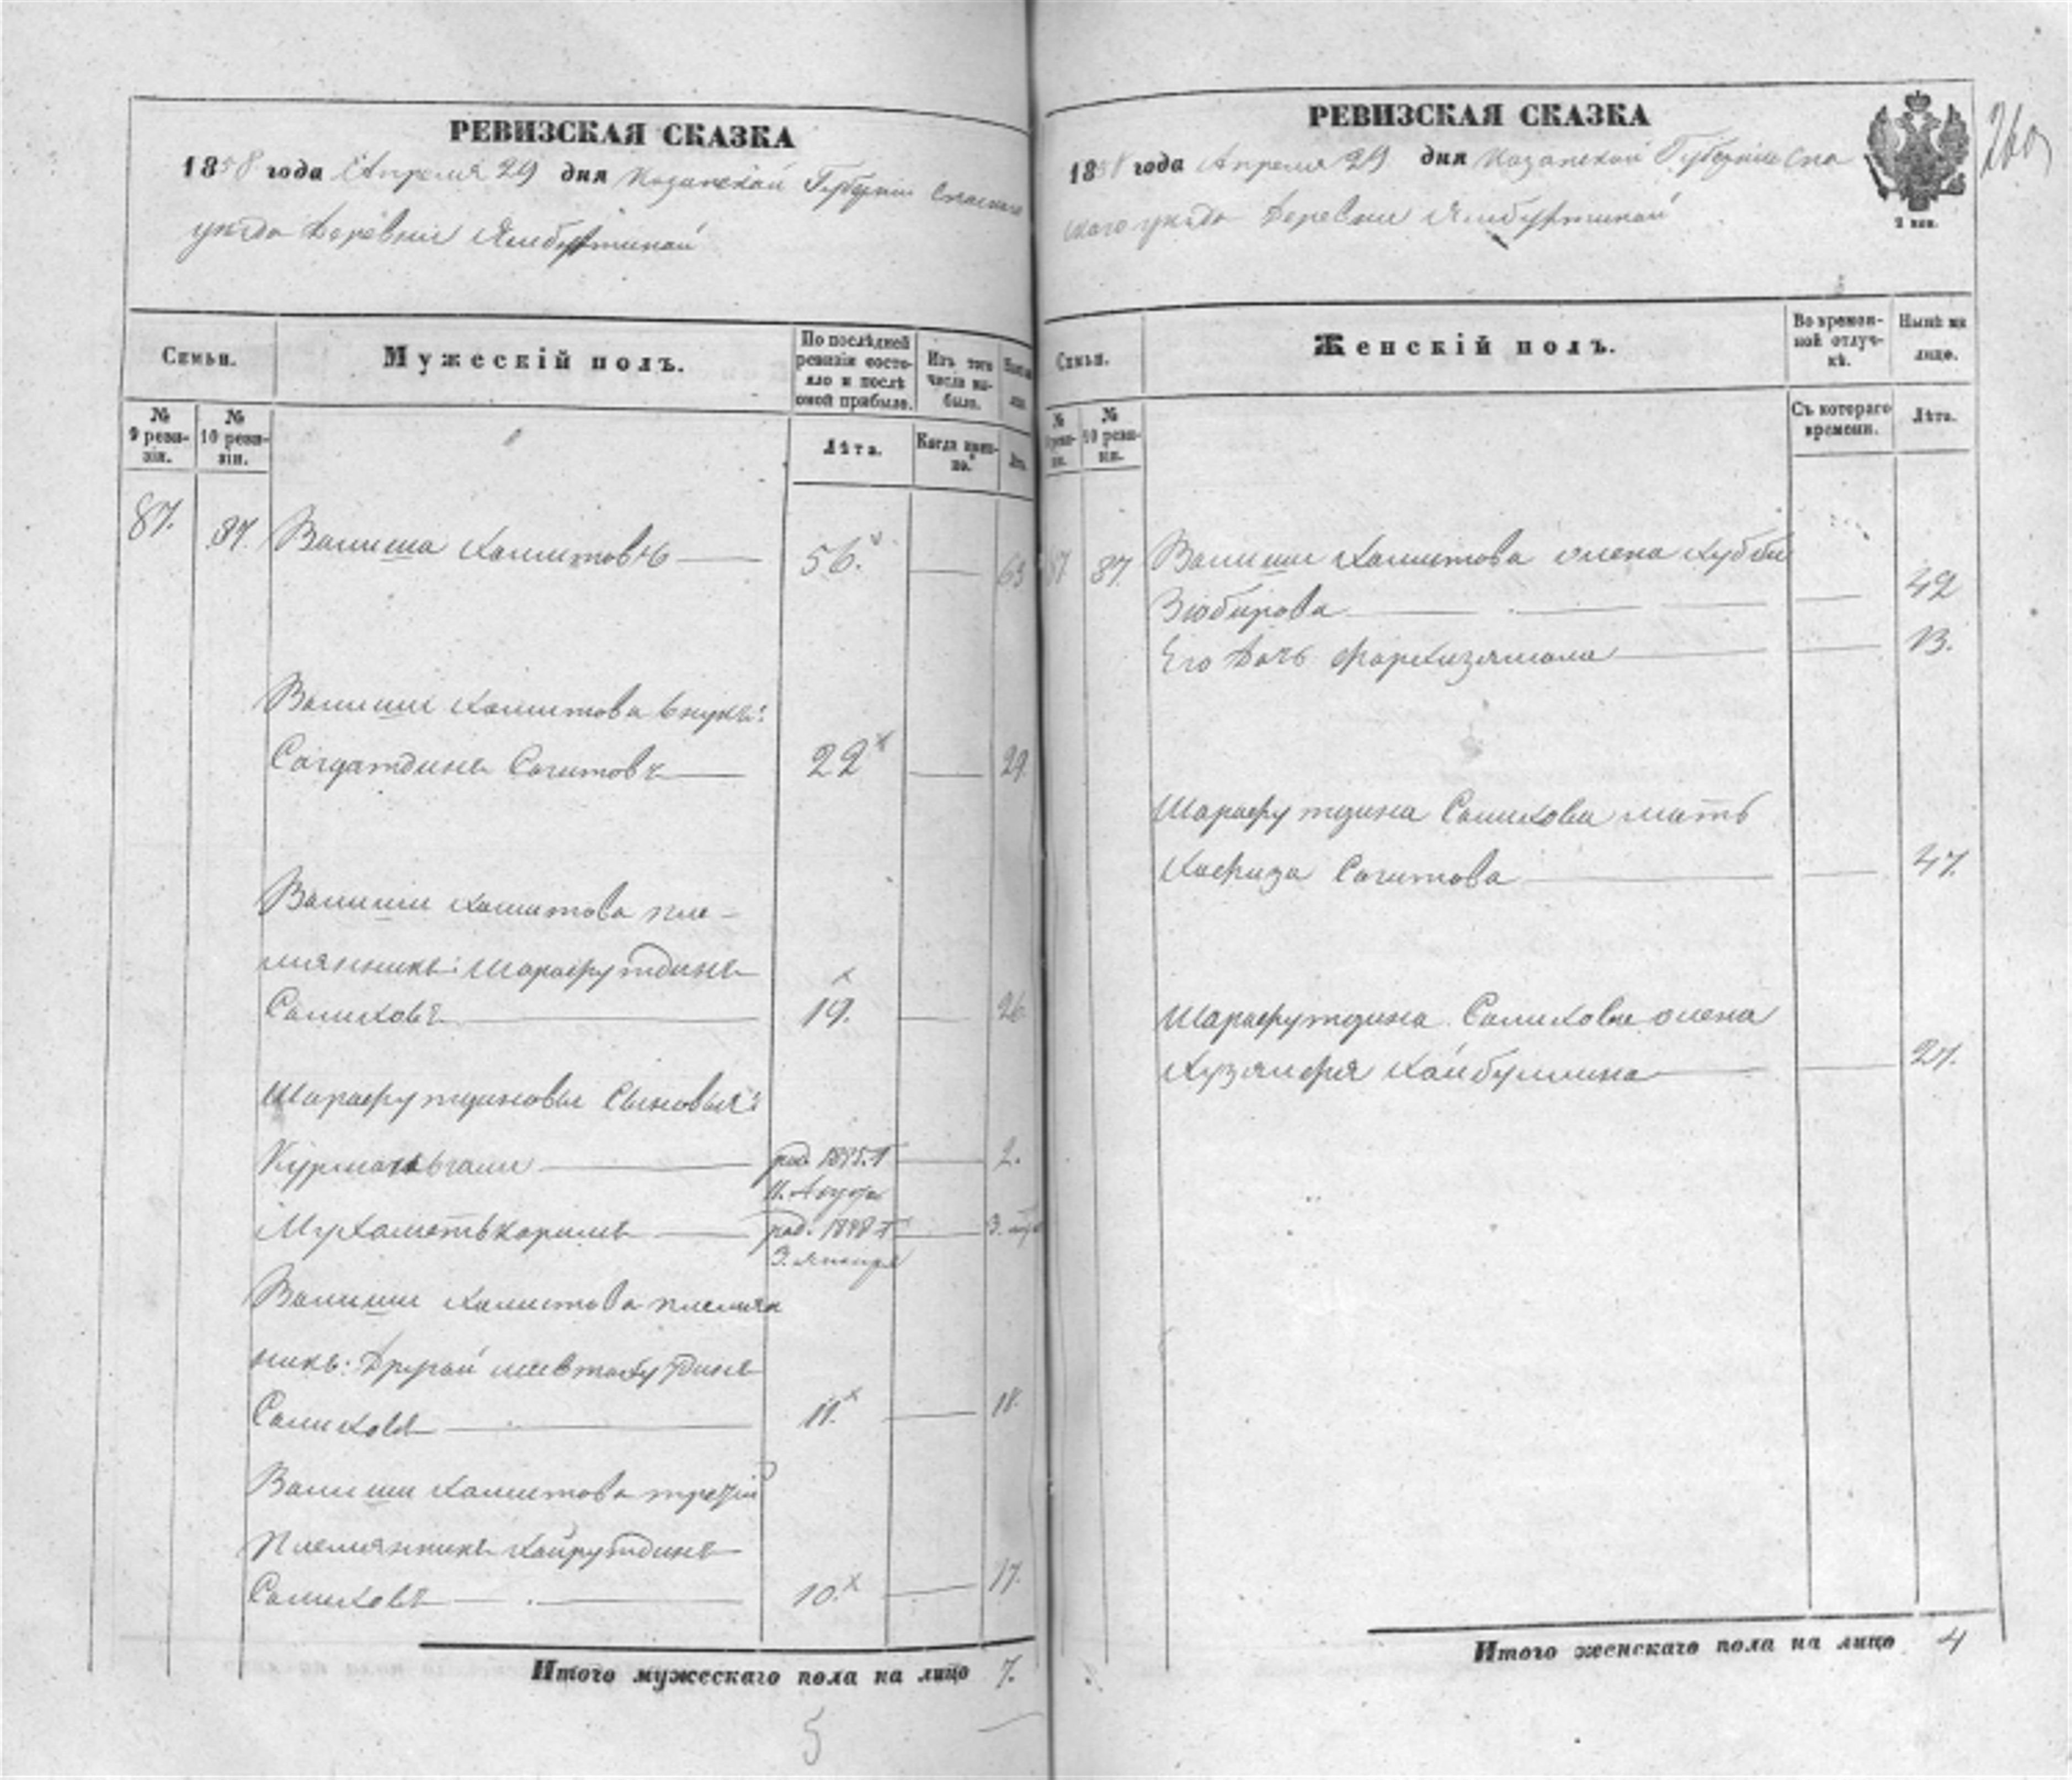 РЕВИЗСКАЯ СКАЗКА
1858 года Апреля 29 дня Казанской Губернии Спаскаго
уезда Деревни Ямбухтиной
Семьи.
Мужескій полъ.
По послѣдней ревизіи состояло и послѣ оной прибыло.
Изъ того числа выбыло.
№ 9 ревизіи.
№ 10 ревизіи.
Лѣта.
Когда именно.
Лѣта.
87.
87.
Валиша Хамитовъ
56.
63
Валиши Хамитова внукъ:
Сагдатдинъ Сагитовъ
22
29.
Валиши Хамитова пле-
мянникъ: Шарафутдинъ
Салиховъ
19.
26.
Шарафутдиновы Сыновья:
Курмангали
2.
Мухаметькаримъ
3. января
Валиши Хамитова племян
никъ: Другой Мивтахутдинъ
Салиховъ
11.
18.
Валиши Хамитова третій
Племянникъ Хайрутдинъ
Салиховъ
10.
17.
Итого мужескаго пола на лицо 7.
5
РЕВИЗСКАЯ СКАЗКА
1858 года Апреля 29 дня Казанской Губернии Спа
скаго уезда Деревни Ямбухтиной
2 коп.
260
Семьи.
Женскій полъ.
Во временной отлучкѣ.
Нынѣ на лицо.
№ 9 ревизіи.
№ 10 ревизіи.
Съ котораго времени.
Лѣта.
87
87.
Валиши Хамитова жена Хубби
Зюбирова
42
Его дочь Фархизямала
13.
Шарафутдина Салихова мать
Хафиза Сагитова
47.
Шарафутдина Салихова жена
Хузямфя Хайбуллина
27.
Итого женскаго пола на лицо 4